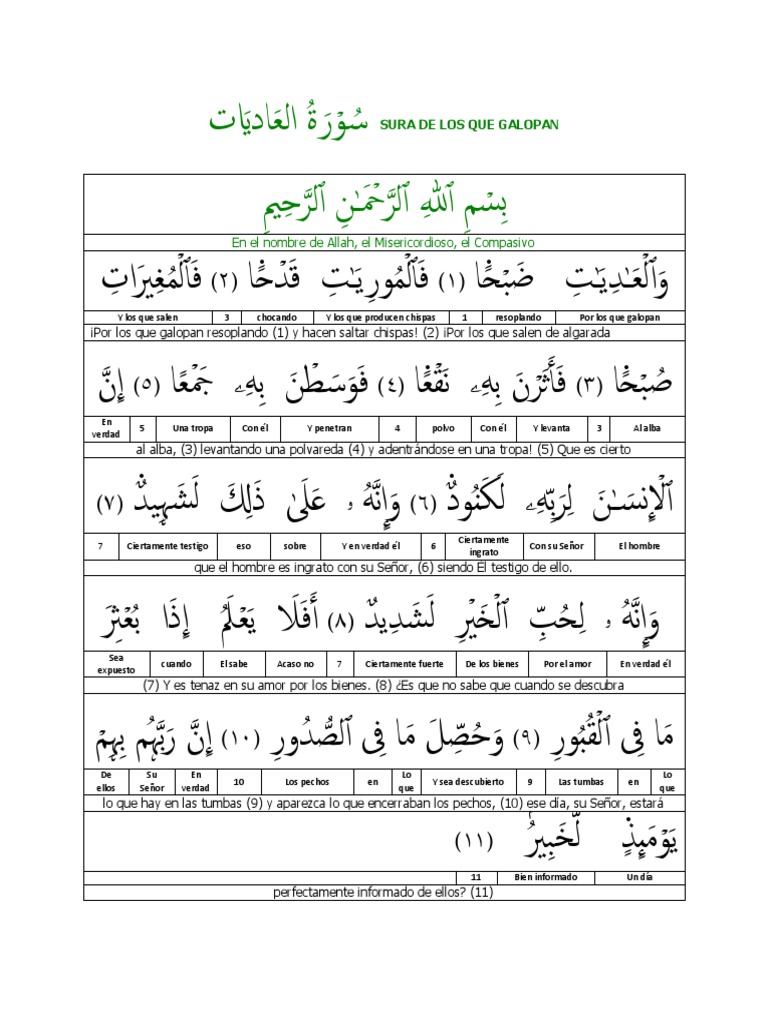 سُوْرَةُ العَاديَات SURA DE LOS QUE GALOPAN
بِسْمِ ٱللَّهِ ٱلرَّحْمَـٰنِ ٱلرَّحِيمِ
En el nombre de Allah, el Misericordioso, el Compasivo
وَٱلْعَـٰدِيَـٰتِ ضَبْحًا (١) فَٱلْمُورِيَـٰتِ قَدْحًا (٢) فَٱلْمُغِيرَاتِ
Y los que salen 3 chocando Y los que producen chispas 1 resoplando Por los que galopan
¡Por los que galopan resoplando (1) y hacen saltar chispas! (2) ¡Por los que salen de algarada
صُبْحًا (٣) فَأَثَرْنَ بِهِۦ نَقْعًا (٤) فَوَسَطْنَ بِهِۦ جَمْعًا (٥) إِنَّ
En verdad 5 Una tropa Con él Y penetran 4 polvo Con él Y levanta 3 Al alba
al alba, (3) levantando una polvareda (4) y adentrándose en una tropa! (5) Que es cierto
ٱلْإِنسَـٰنَ لِرَبِّهِۦ لَكَنُودٌ (٦) وَإِنَّهُۥ عَلَىٰ ذَٰلِكَ لَشَهِيدٌ (٧)
7 Ciertamente testigo eso sobre Y en verdad él 6 Ciertamente ingrato Con su Señor El hombre
que el hombre es ingrato con su Señor, (6) siendo Él testigo de ello.
وَإِنَّهُۥ لِحُبِّ ٱلْخَيْرِ لَشَدِيدٌ (٨) أَفَلَا يَعْلَمُ إِذَا بُعْثِرَ
Sea expuesto cuando El sabe Acaso no 7 Ciertamente fuerte De los bienes Por el amor En verdad él
(7) Y es tenaz en su amor por los bienes. (8) ¿Es que no sabe que cuando se descubra
مَا فِى ٱلْقُبُورِ (٩) وَحُصِّلَ مَا فِى ٱلصُّدُورِ (١٠) إِنَّ رَبَّهُم بِهِمْ
De ellos Su Señor En verdad 10 Los pechos en Lo que Y sea descubierto 9 Las tumbas en Lo que
lo que hay en las tumbas (9) y aparezca lo que encerraban los pechos, (10) ese día, su Señor, estará
يَوْمَئِذٍ لَّخَبِيرٌ (١١)
11 Bien informado Un día
perfectamente informado de ellos? (11)